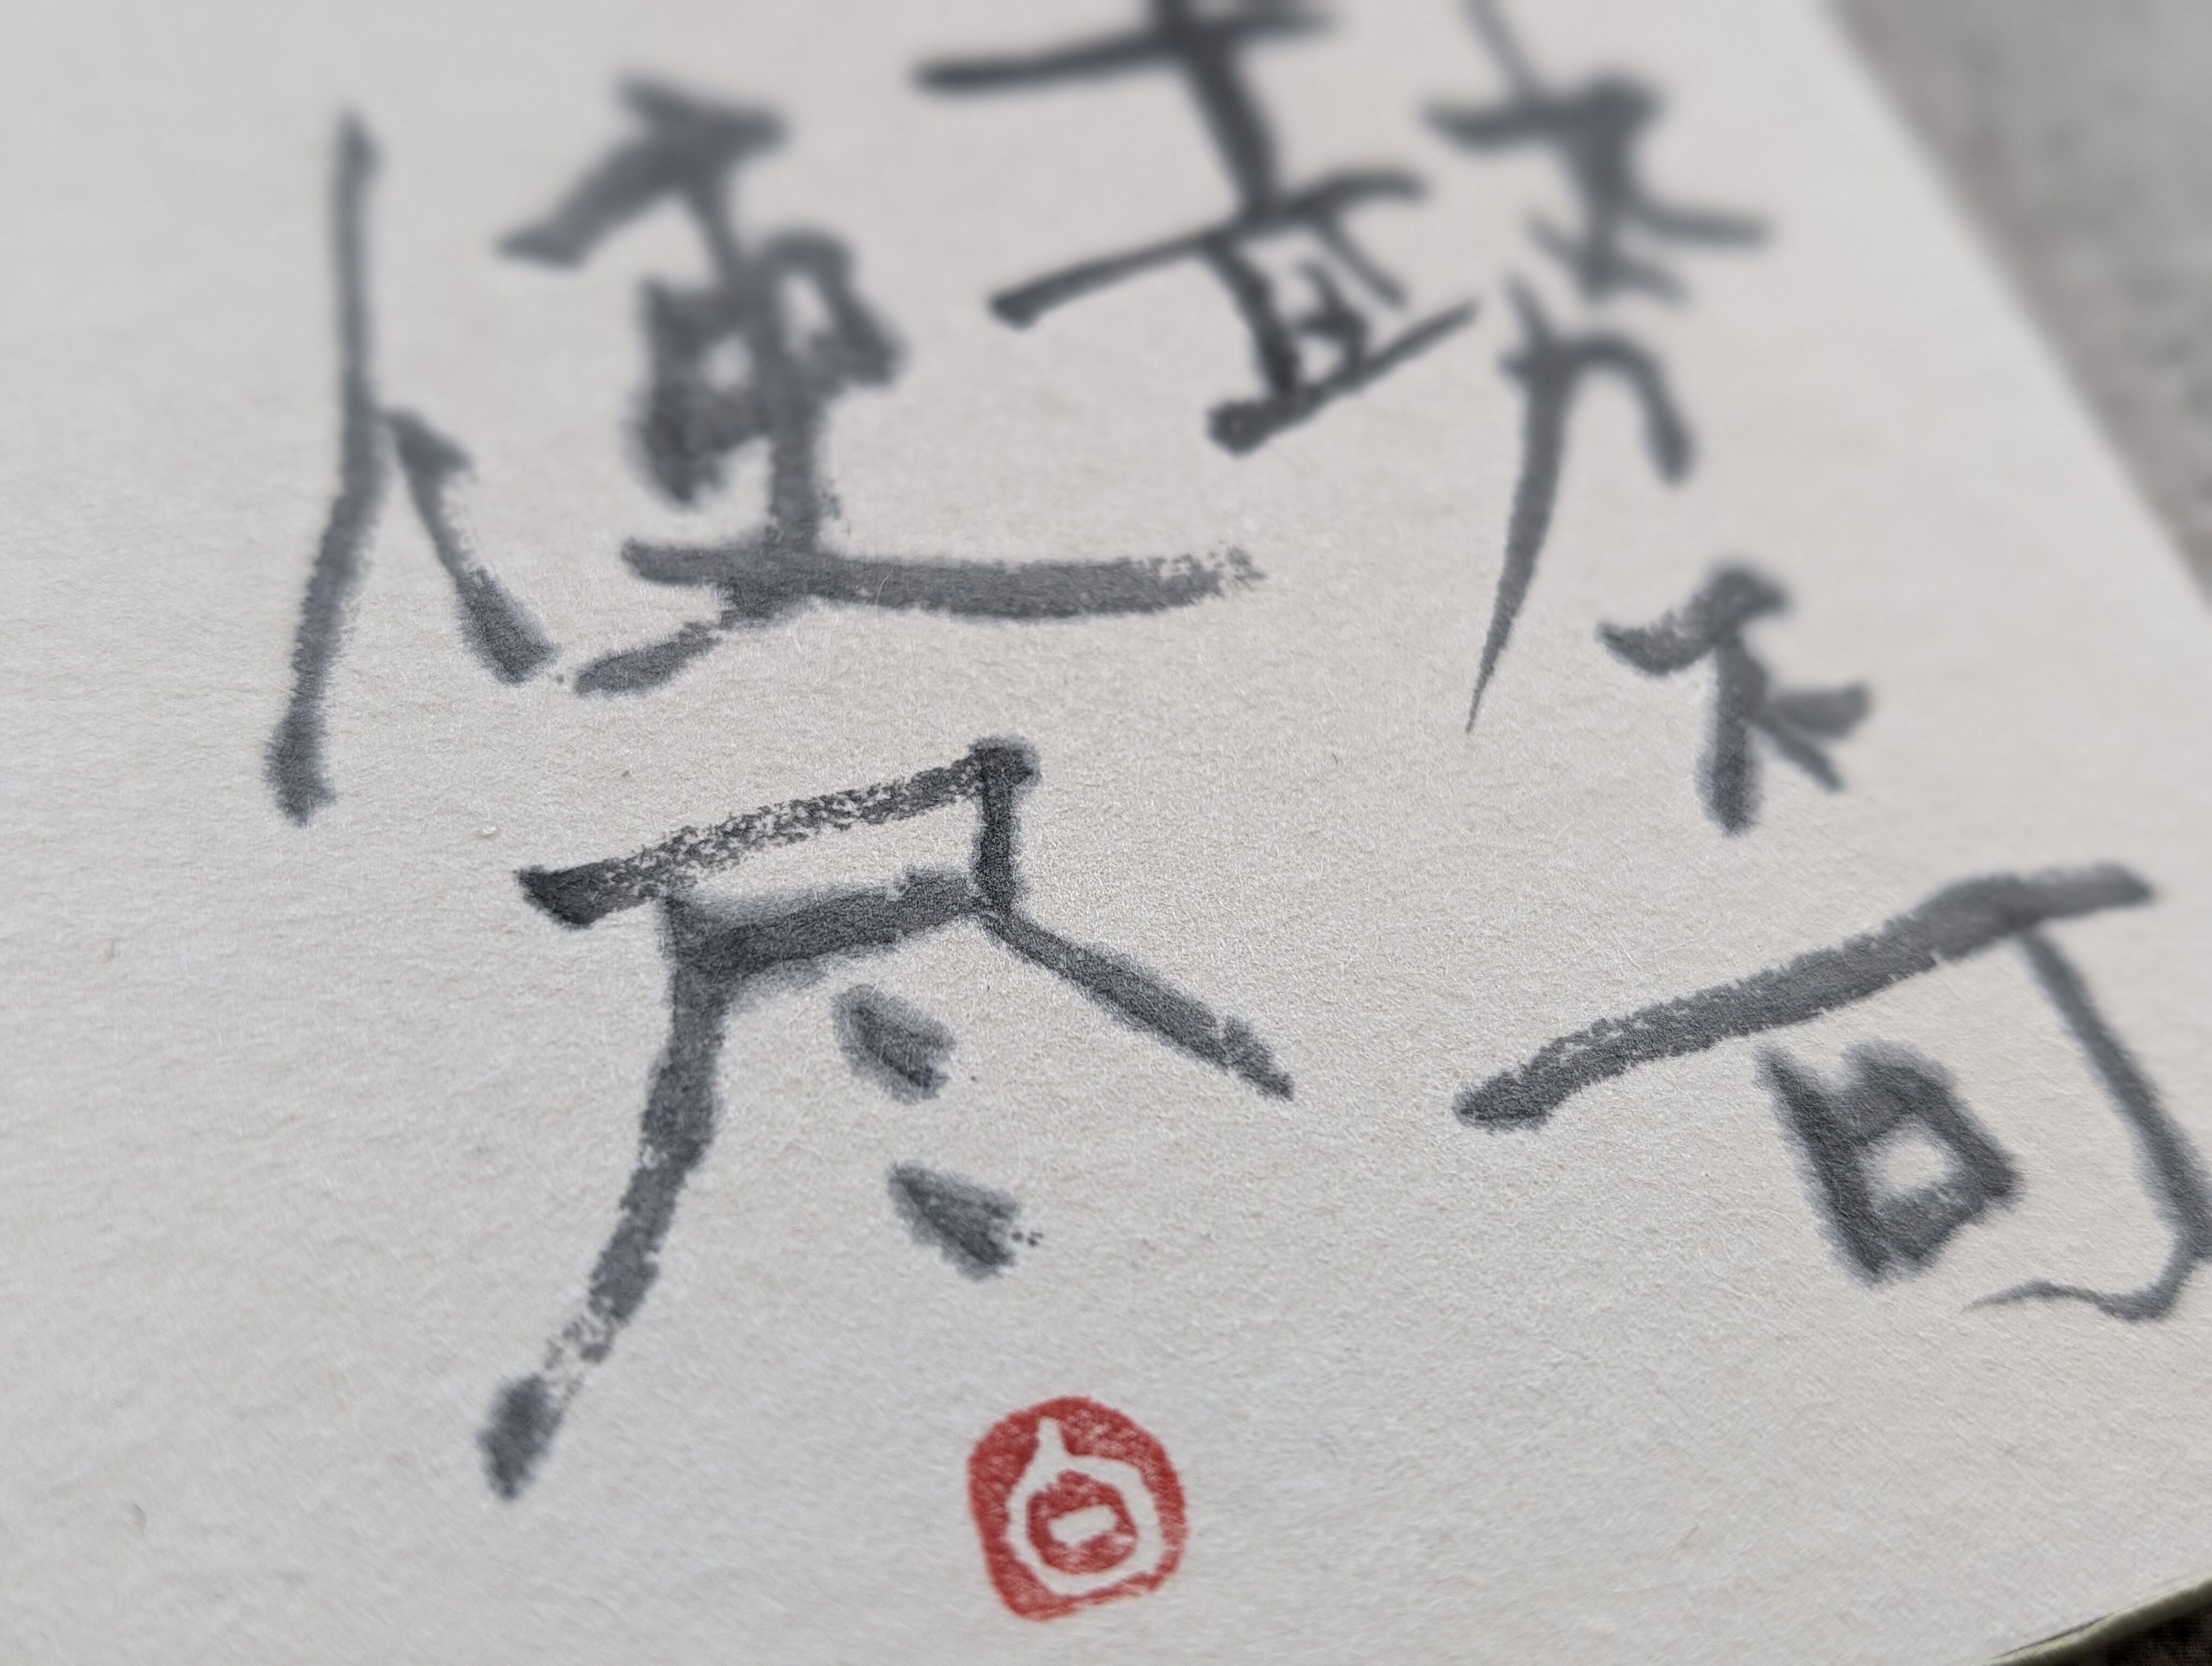 勢不可
使尽
白